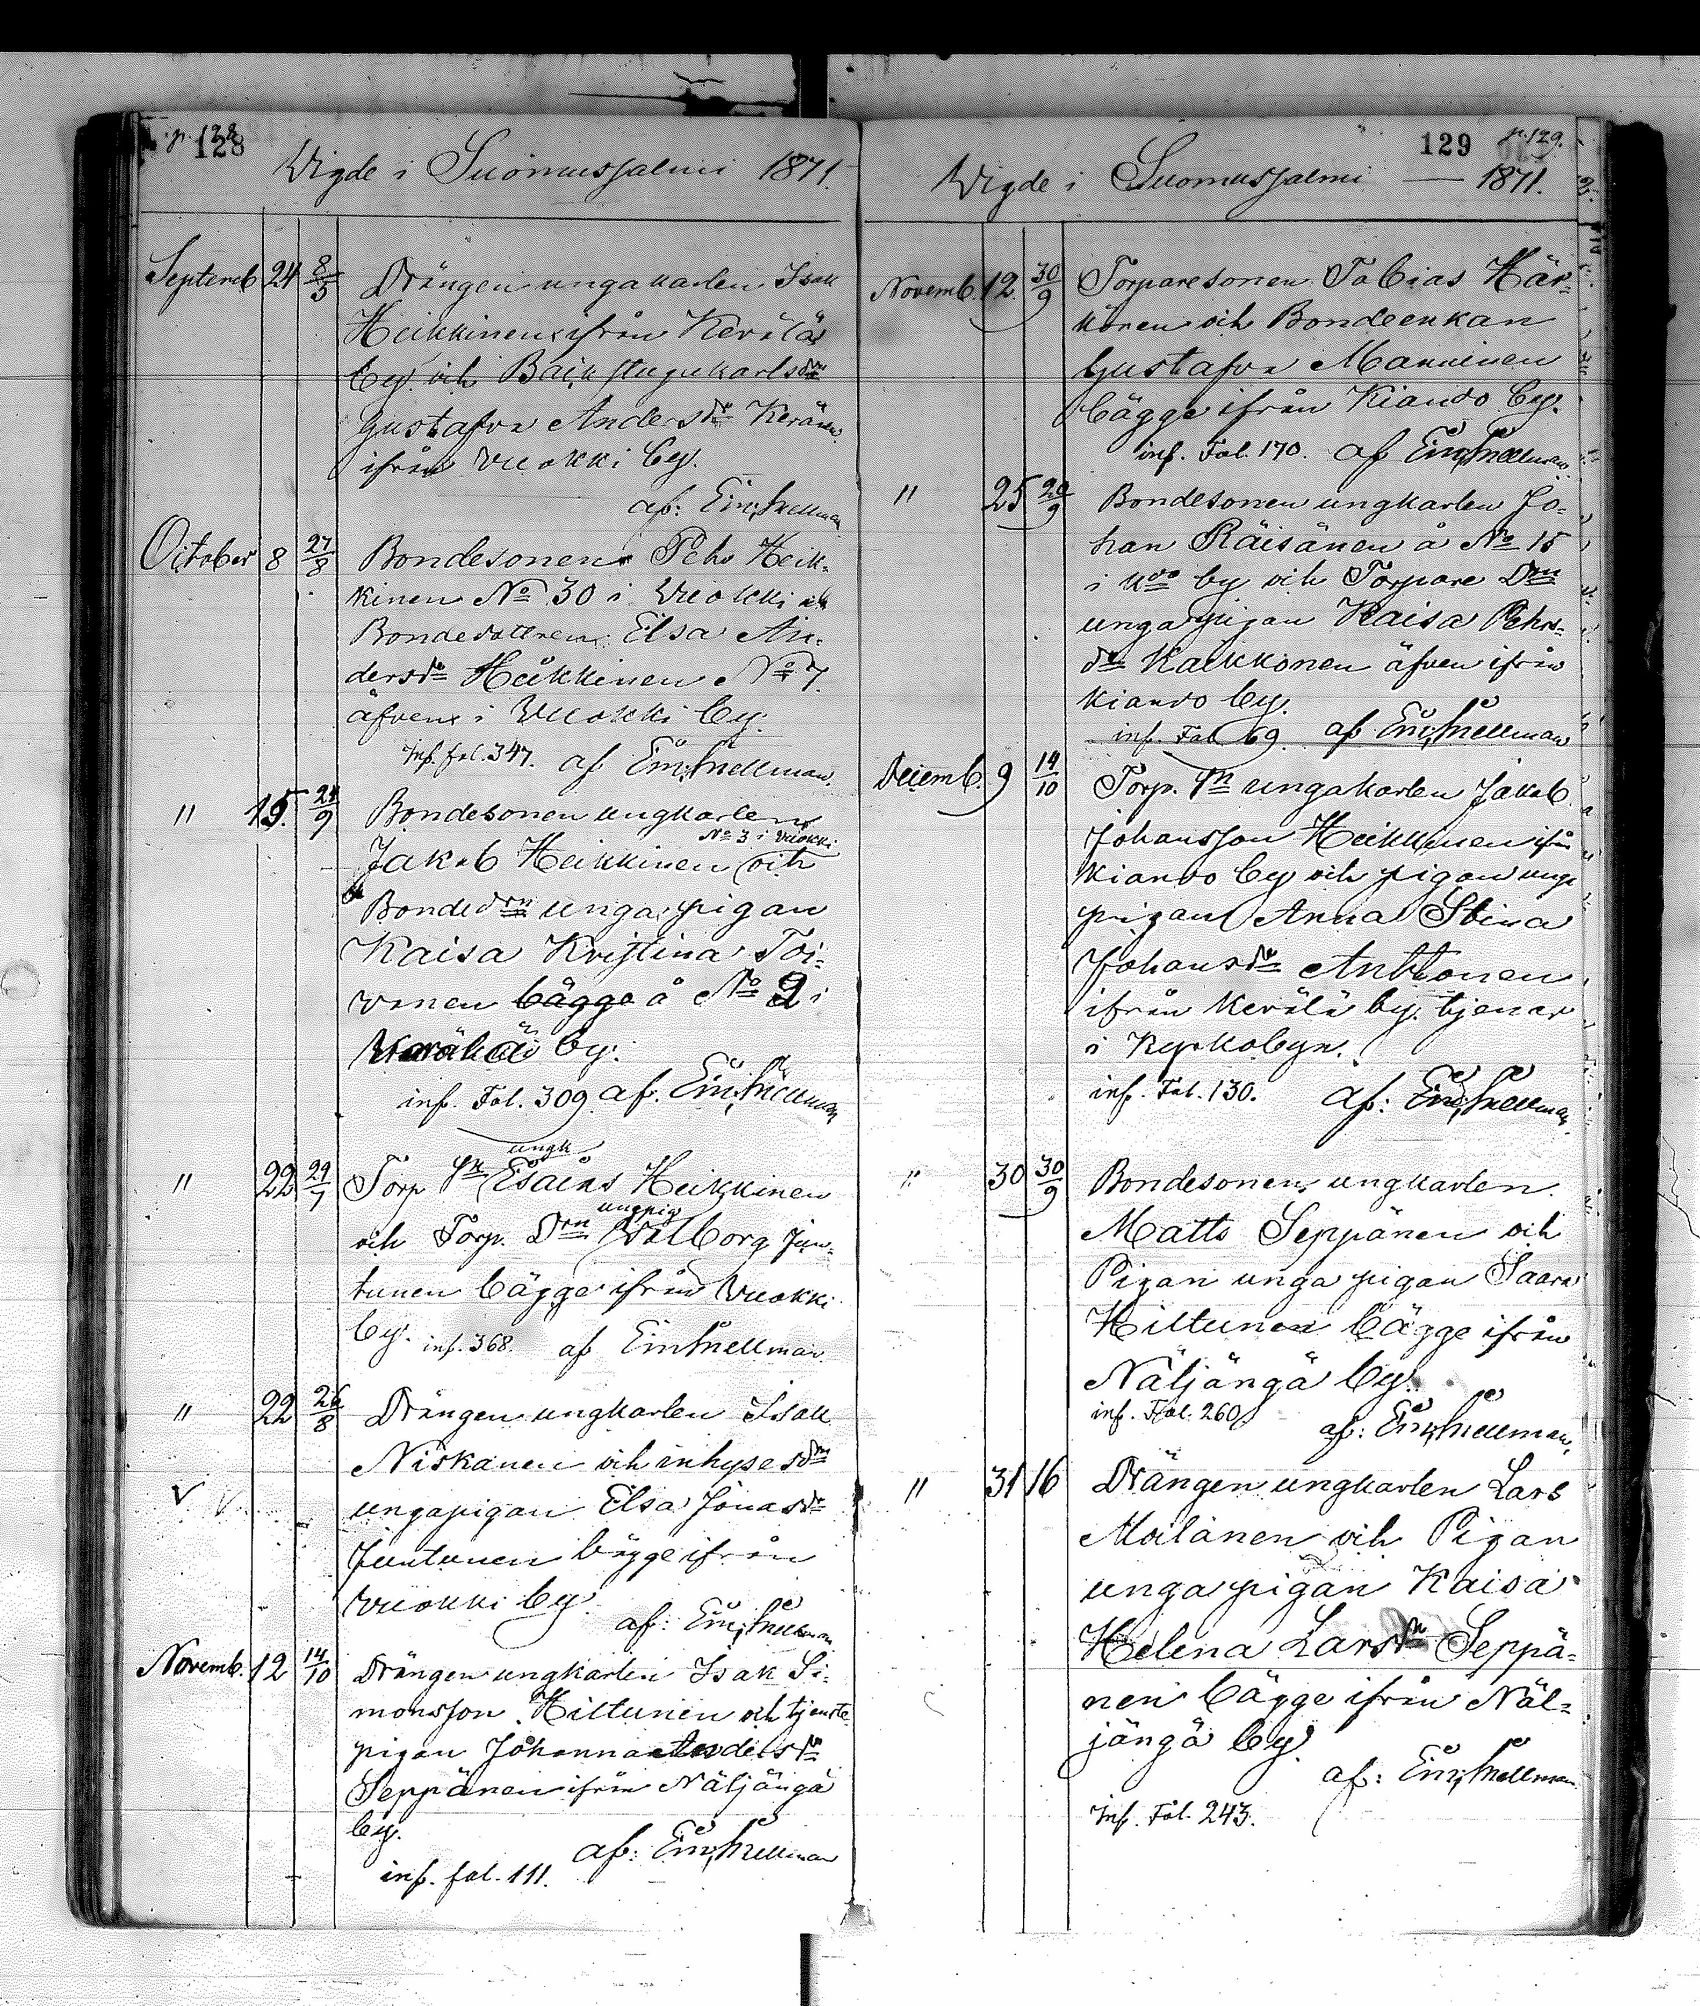 p. 128
128
Vigde i Suomussalmi 1871.
Septemb. 24 8/5 Drängen ungakarlen Isak
Heikkinen ifrån Kerälä
by och Backstugukarlsdrn
Gustafva Andersdr Keränen
ifrån Vuokki by.
af: Em. Snellman
October 8 27/8 Bondesonen Pehr Heik-
kinen No 30 i Vuokki och
Bondedottren Elsa An-
dersdr Heikkinen No 7.
äfven i Vuokki by.
Inf. fol. 347. af Em. Snellman.
" 15. 24/9 Bondesonen ungkarlen
No 3 i Vuokki
Jakob Heikkinen och
Bondedrn unga pigan
Kaisa Kristina Toi-
vonen bägge å No 2 i
by.
inf. Fol. 309 af. Em. Snellman
ungk
" 22 29/7 Torp. sn Esaias Heikkinen
ungpig
och Torp. Drn Valborg Jun-
tunen bägge ifrån Vuokki
by. inf. 368. af Em Snellman.
" 22 26/8 Drängen ungkarlen Isak
Niskanen och inhysesdrn
ungapigan Elsa Jonasdr
Juntunen bägge ifrån
Vuokki by.
af: Em. Snellman
Novemb. 12 14/10 Drängen ungkarlen Isak Si-
monsson Hiltunen och tjenste
pigan Johanna Andersdr
Seppänen ifrån Näljängä
by.
af: Em. Snellman
inf. fol. 111.
129 p. 129.
Vigde i Suomussalmi — 1871.
Novemb. 12. 30/9 Torparesonen Tobias Här-
könen och Bondeenkan
Gustafva Manninen
bägge ifrån Kiando by.
inf. Fol. 170. af Em. Snellman
" 25 20/9 Bondesonen ungkarlen Jo-
han Räisänen å No 15
i Kdo by och Torpare Drn
unga pigan Kaisa Pehrs-
dr Kaikkonen äfven ifrån
Kiando by.
inf. Fol. 69. af Em. Snellman
Decemb. 9 14/10 Torp. sn ungakarlen Jakob
Johansson Heikkinen ifrn
Kiando by och pigan unga
pigan Anna Stina
Johansdr Anttonen
ifrån Kerälä by. tjenar
i Kyrkobyn.
inf. Fol. 130. af: Em. Snellman.
" 30 30/9 Bondesonen ungkarlen
Matts Seppänen och
Pigan unga pigan Saara
Hiltunen bägge ifrån
Näljängä by.
inf. Fol. 260. af: Em. Snellman,
" 31 16 Drängen ungkarlen Lars
Moilanen och Pigan
unga pigan Kaisa
Helena Larsdr Seppä-
nen bägge ifrån Näl-
jängä by.
af: Em. Snellman
Inf. Fol. 243.